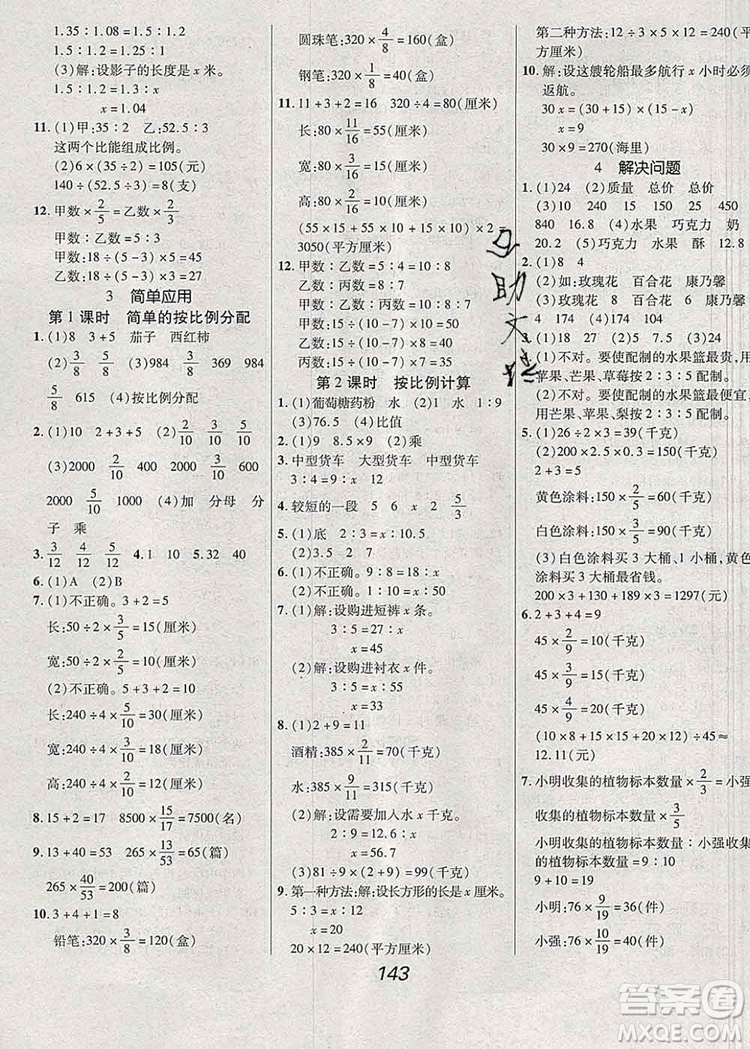 1.35∶1.08=1.5∶1.2
1.8∶1.2=1.5∶1
(3)解:设影子的长度是 x 米。
1.5∶1.2=1.3∶x
x=1.04
11.(1)甲:35∶2 乙:52.5∶3
这两个比能组成比例。
(2)6×(35÷2)=105(元)
140÷(52.5÷3)=8(支)
12.甲数×2/5=乙数×2/3
甲数∶乙数=5∶3
甲数:18÷(5-3)×5=45
乙数:18÷(5-3)×3=27
3 简单应用
第 1 课时 简单的按比例分配
1.(1)8 3+5 茄子 西红柿
(2)3/8 5/8 (3)984 3/8 369 984
5/8 615 (4)按比例分配
2.(1)10 2+3+5 (2)2/10 3/10 5/10
(3)2000 2/10 400 2000 3/10 600
2000 5/10 1000 (4)加 分母 分
子 乘
3.3/12 4/12 5/12 4.10 5.32 40
6.(1)A (2)B
7.(1)不正确。3+2=5
长:50÷2×3/5=15(厘米)
宽:50÷2×2/5=10(厘米)
(2)不正确。5+3+2=10
长:240÷4×5/10=30(厘米)
宽:240÷4×3/10=18(厘米)
高:240÷4×2/10=12(厘米)
8.15+2=17 8500×15/17=7500(名)
9.13+40=53 265×13/53=65(篇)
265×40/53=200(篇)
10.3+4+1=8
铅笔:320×3/8=120(盒)
圆珠笔:320×4/8=160(盒)
钢笔:320×1/8=40(盒)
11.11+3+2=16 320÷4=80(厘米)
长:80×11/16=55(厘米)
宽:80×3/16=15(厘米)
高:80×2/16=10(厘米)
(55×15+55×10+15×10)×2=
3050(平方厘米)
12.甲数∶乙数=5∶4=10∶8
乙数∶丙数=8∶7
甲数∶乙数∶丙数=10∶8∶7
甲数:15÷(10-7)×10=50
乙数:15÷(10-7)×8=40
丙数:15÷(10-7)×7=35
第 2 课时 按比例计算
1.(1)葡萄糖药粉 水 (2)水 1∶9
(3)76.5 (4)比值
2.(1)9 8.5×9 (2)乘
3.中型货车 大型货车 中型货车
3∶4=9∶x 12
4.较短的一段 5 6 x 2 5/3
5.(1)底 2∶3=x∶10.5
(2)3.5 7
6.(1)不正确。9∶8=18∶x
(2)不正确。
7.(1)解:设购进短裤 x 条。
3∶5=27∶x
x=45
(2)解:设购进衬衣 x 件。
3∶5=x∶55
x=33
8.(1)2+9=11
酒精:385×2/11=70(千克)
水:385×9/11=315(千克)
(2)解:设需要加入水 x 千克。
2∶9=12.6∶x
x=56.7
(3)81÷(9-2)×2+81=99(千克)
9.第一种方法:解:设长方形的长是 x 厘米。
5∶3=x∶12
x=20
20×12=240(平方厘米)
第二种方法:12÷3×5×12=240(
(平方厘米)
10.解:设这艘轮船最多航行 x 小时必须
返航。
30x=30×(15-x)
x=9
30×9=270(海里)
4 解决问题
1.(1)24 (2)质量 总价 总价
(3)10.5 420 12.5 250 10
840 16.8 (4)水果 巧克力 奶
20.2 (5)巧克力 水果 酥 12.8
2.(1)3
(2)如:玫瑰花 百合花 康乃馨
(3)玫瑰花 百合花 康乃馨
4 174 (4)138 174
3.(1)18 27 (2)1.5 (3)24
4.(1)不对。要使配制的水果篮最贵,用
苹果、芒果、草莓按 2∶3∶5 配制。
(2)不对。要使配制的水果篮最便宜,
用芒果、苹果、梨按 2∶3∶5 配制。
5.(1)26÷2×3=39(千克)
(2)200×2.5×0.3=150(千克)
2+3=5
黄色涂料:150×2/5=60(千克)
白色涂料:150×3/5=90(千克)
(3)白色涂料买 3 大桶、1 小桶,黄色
涂料买 3 大桶最省钱。
200×3+130+189×3=1297(元)
6.2+3+4=9
45×2/9=10(千克)
45×3/9=15(千克)
45×4/9=20(千克)
(10×20+15×10+20×12)÷45≈
12.11(元)
7.小明收集的植物标本数量×2/3=小强
收集的植物标本数量×3/5
小明收集的植物标本数量∶小强收集
的植物标本数量=9∶10
9+10=19
小明:76×9/19=36(件)
小强:76×10/19=40(件)
143
答案圈
MXQE.COM